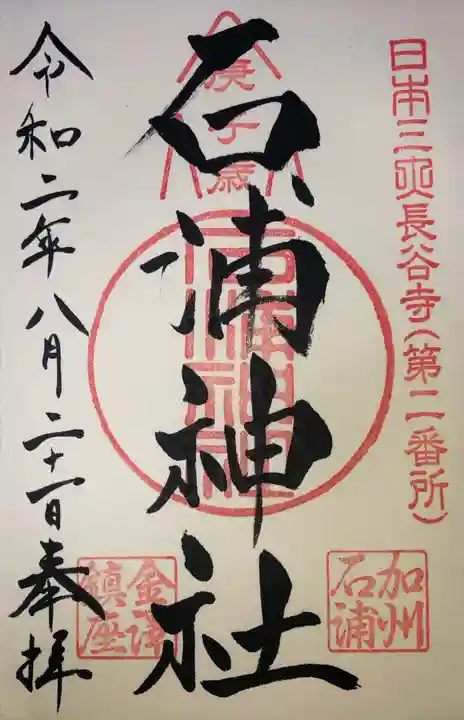 日本三大長谷寺(第二番所)
庚子歳
石浦神社
石浦神社
加州石浦
金澤鎮座
令和二年八月二十一日奉拝